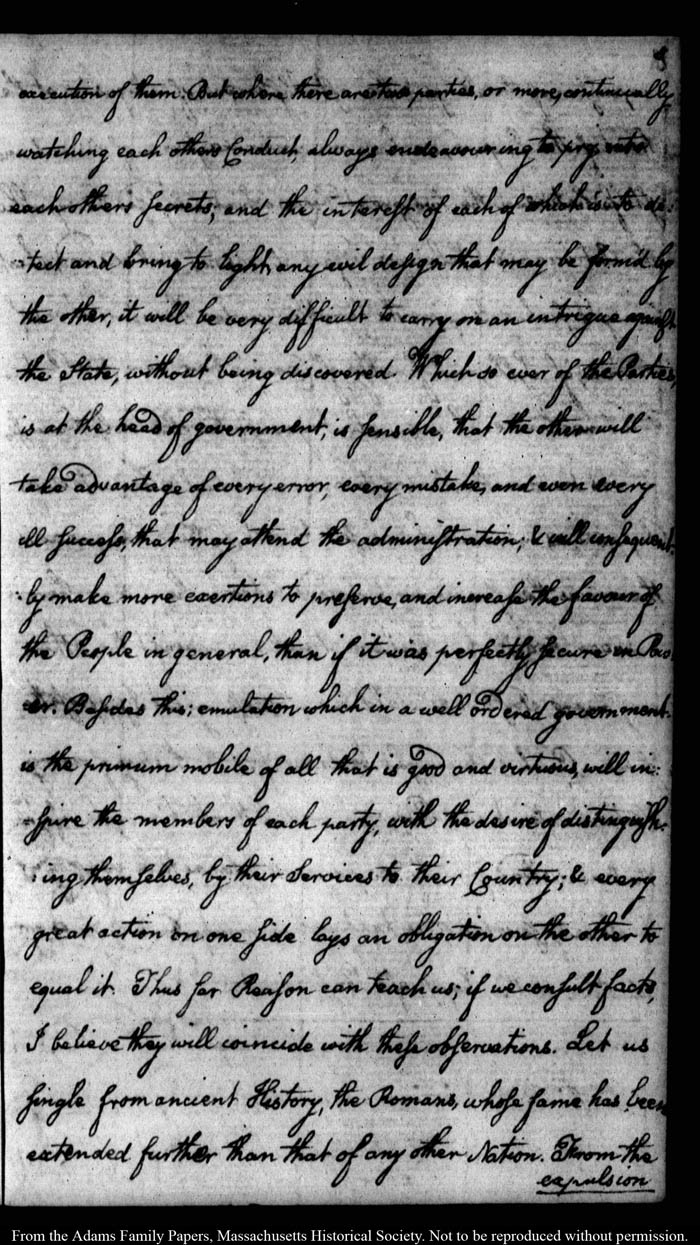 execution of them. But where there are two parties, or more, continually
watching each others Conduct, always endeavouring to pry into
each others secrets, and the interest of each of which is to de:
:tect and bring to light, any evil design that may be form'd by
the other, it will be very difficult to carry on an intrigue against
the State, without being discovered. Which so ever of the Parties,
is at the head of government, is sensible, that the other will
take advantage of every error, every mistake, and even every
ill success, that may attend the administration; & will consequent:
:ly make more exertions to preserve, and increase the favour of
the People in general, than if it was perfectly secure in Pow
:er. Besides this; emulation which in a well ordered government
is the primum mobile of all that is good and virtuous, will in:
:spire the members of each party, with the desire of distinguish:
:ing themselves, by their Services to their Country; & every
great action on one side lays an obligation on the other to
equal it. Thus far Reason can teach us; if we consult facts,
I believe they will coincide with these observations. Let us
single from ancient History, the Romans, whose fame has been
extended further than that of any other Nation. From the
expulsion
From the Adams Family Papers, Massachusetts Historical Society. Not to be reproduced without permission.